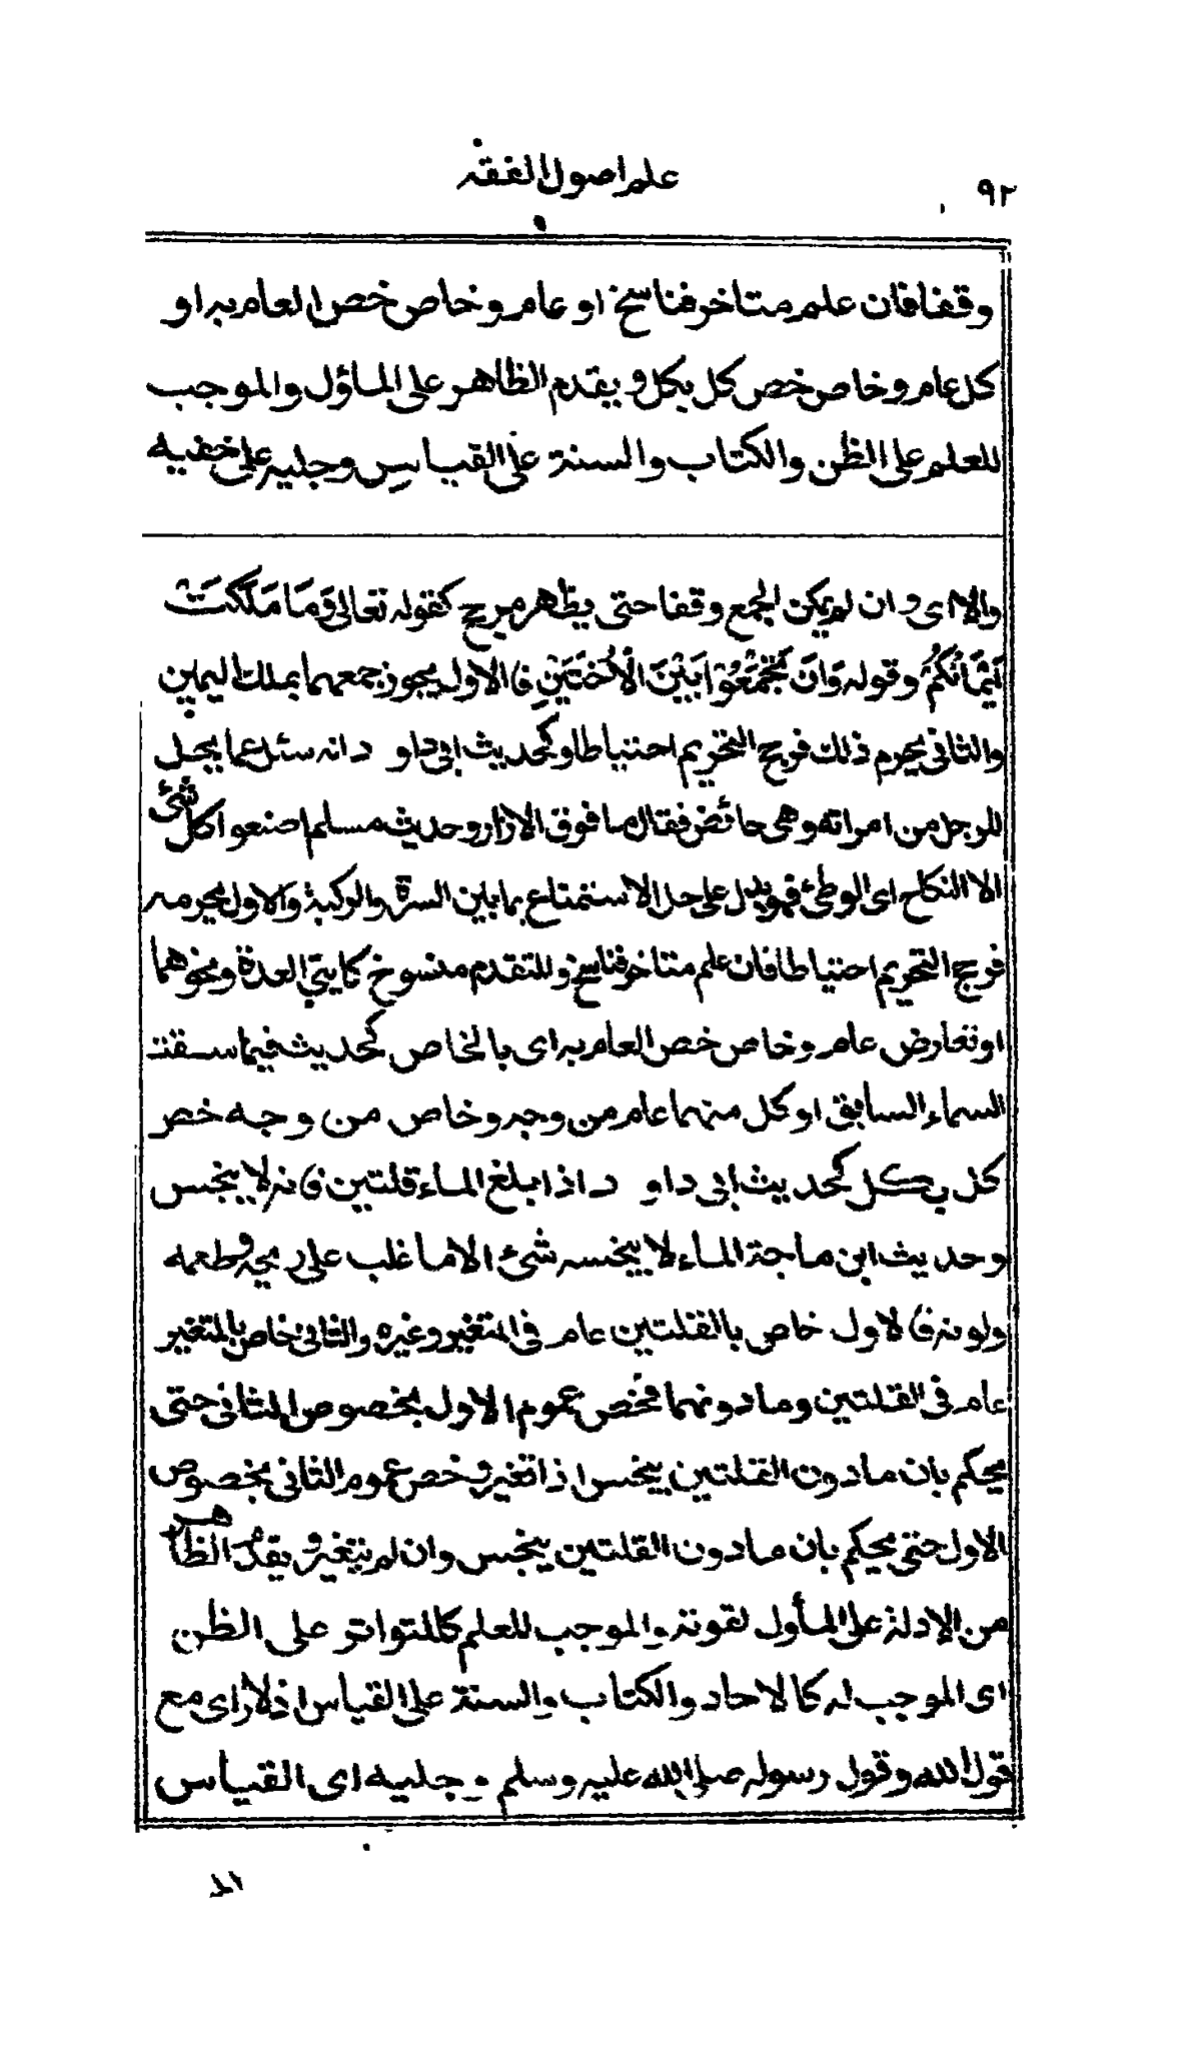 ٩٢
علم اصول الفقه
وقفا فان علم متاخر فناسخ او عام وخاص خص العام به او
كل عام وخاص خص كل بكل ويقدم الظاهر على الماؤل والموجب
للعلم على الظن والكتاب والسنة على القياس وجليه على خفيه
والا اى وان لم يمكن الجمع وقفا حتى يظهر مرجح كقوله تعالى وَمَا مَلَكَتْ
اَيْمَانُكُمْ وقوله وَاَنْ تَجْمَعُوْا بَيْنَ الْاُخْتَيْنِ فالاول يجوز جمعهما بملك اليمين
والثانى يحرم ذلك فرجح التحريم احتياطا وكحديث ابى داو د انه سئل عما يحل
للرجل من امراته وهى حائض فقال ما فوق الازار وحديث مسلم اصنعوا كل شئ
الا النكاح اى الوطئ فهو يدل على حل الاستمتاع بما بين السرة والركبة والاول يحرمه
فرجح التحريم احتياطا فان علم متاخر فناسخ والمتقدم منسوخ كايتي العدة ونحوهما
او تعارض عام وخاص خص العام به اى بالخاص كحديث فيما سقت
السماء السابق او كل منهما عام من وجه وخاص من وجه خص
كل بكل كحديث ابى داو د اذا بلغ الماء قلتين فانه لا ينجس
وحديث ابن ماجة الماء لا ينجسه شئ الا ما غلب على ريحه وطعمه
ولونه فالاول خاص بالقلتين عام فى المتغير وغيره والثانى خاص بالمتغير
عام فى القلتين وما دونهما فخص عموم الاول بخصوص الثانى حتى
يحكم بان ما دون القلتين ينجس اذا تغير وخص عموم الثانى بخصوص
الاول حتى يحكم بان ما دون القلتين ينجس وان لم يتغير ويقدم الظاهر
من الادلة على المأول لقوته والموجب للعلم كالمتواتر على الظن
اى الموجب له كالاحاد والكتاب والسنة على القياس اذ لا راى مع
قول الله وقول رسوله صلى الله عليه وسلم وجليه اى القياس